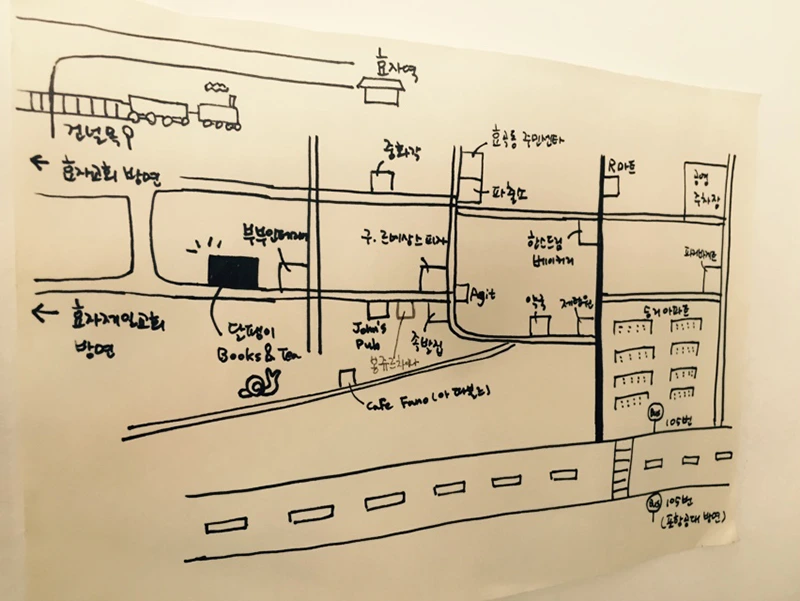 효자역
건널목
효자교회 방면
중화각
효곡동 주민센타
파출소
R마트
공영
주차장
부부인테리어
구. 르네상스피자
한스드림
베이커리
파리바게트
효자제일교회
방면
달팽이
Books & Tea
John's
Pub
족발집
Agit
약국
제형원
승리아파트
Cafe Fano
105번
105번
(포항공대 방면)
Bus
Bus